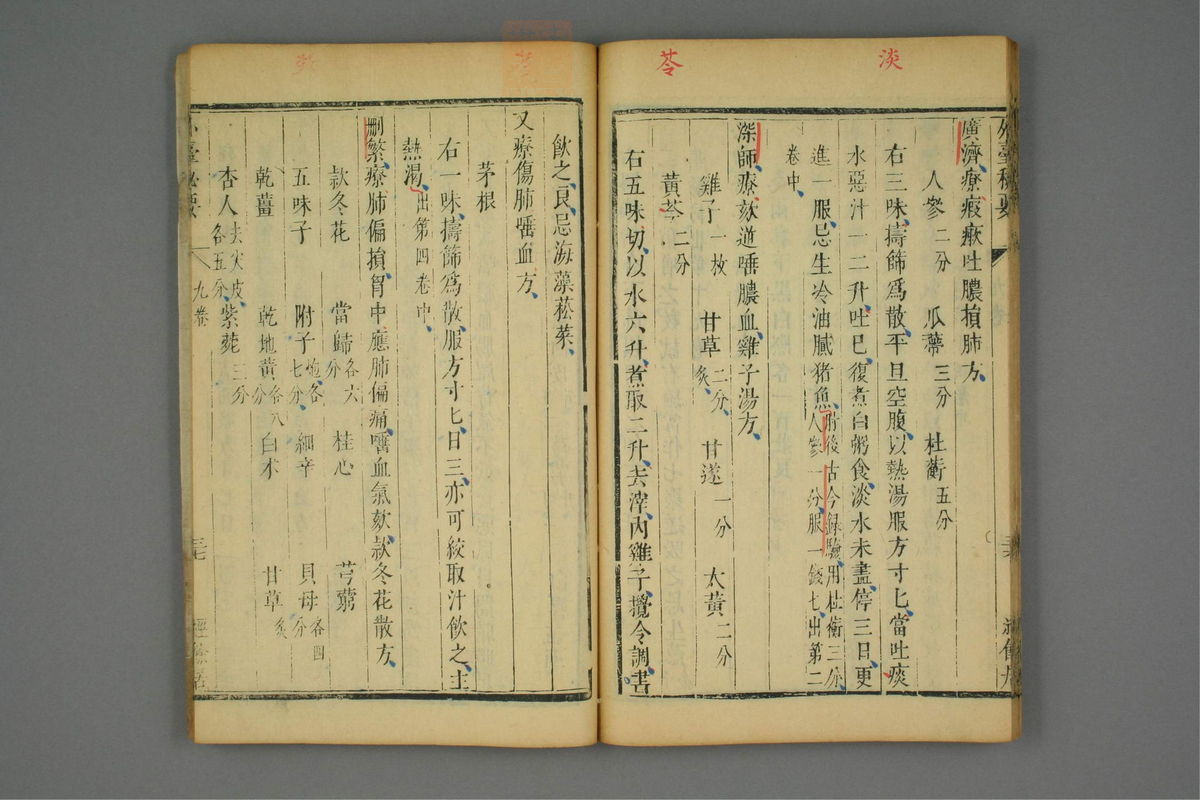 淡
苓
外臺秘要
廣濟療瘕瘶吐膿損肺方
人參二分 瓜蔕三分 杜蘅五分
右三味擣篩爲散平旦空腹以熱湯服方寸匕當吐痰
水惡汁一二升吐巳復煮白粥食淡水未盡停三日更
進一服忌生冷油膩猪魚肘後古今録驗用杜蘅三分人參一分服一錢匕出第二
卷中
深師療欬逆唾膿血雞子湯方
雞子一枚 甘草二分炙 甘遂一分 大黄二分
黄芩二分
右五味切以水六升煮取二升去滓內雞子攪令調盡
飲之良忌海藻菘菜
又療傷肺唾血方
茅根
右一味擣篩爲散服方寸匕日三亦可絞取汁飲之主
熱渴出第四卷中
刪繁療肺偏損胷中應肺偏痛唾血氣欬款冬花散方
款冬花 當歸各六分 桂心 芎藭
五味子 附子炮各七分 細辛 貝母各四分
乾薑 乾地黄各八分 白术 甘草炙
杏人去尖皮各五分 紫菀三分
九卷
經餘居